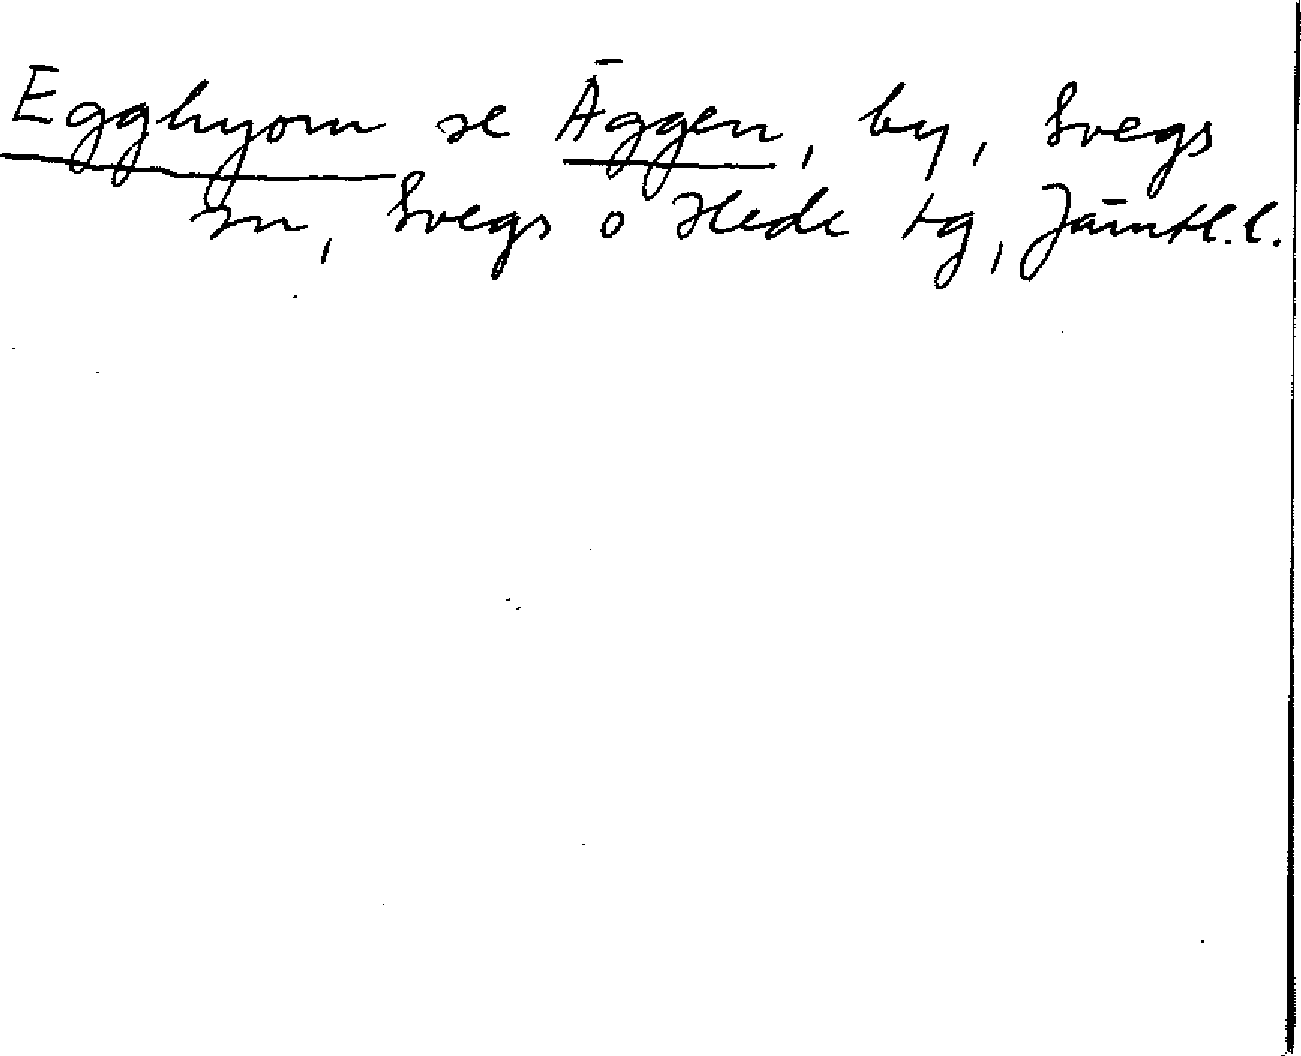 Egghyom se Äggen, by, Svegs
sn, Svegs o Hede tg, Jämtl.l.